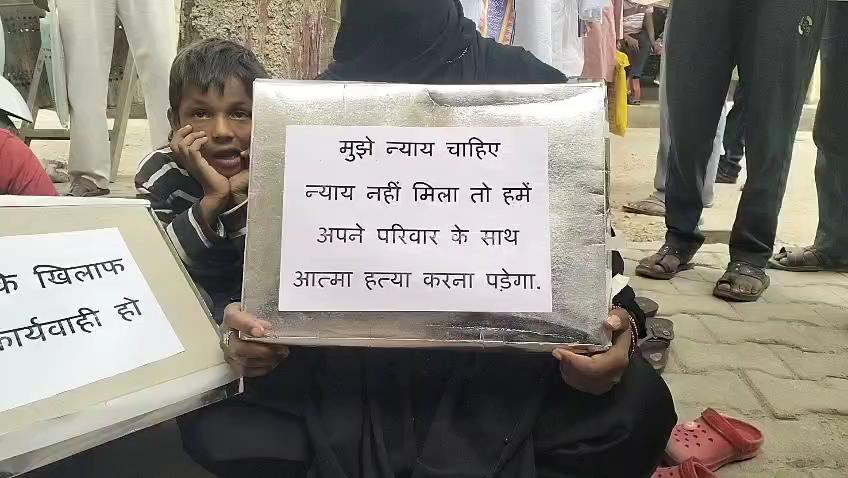 मुझे न्याय चाहिए
न्याय नहीं मिला तो हमें
अपने परिवार के साथ
आत्मा हत्या करना पड़ेगा.
के खिलाफ
कार्यवाही हो